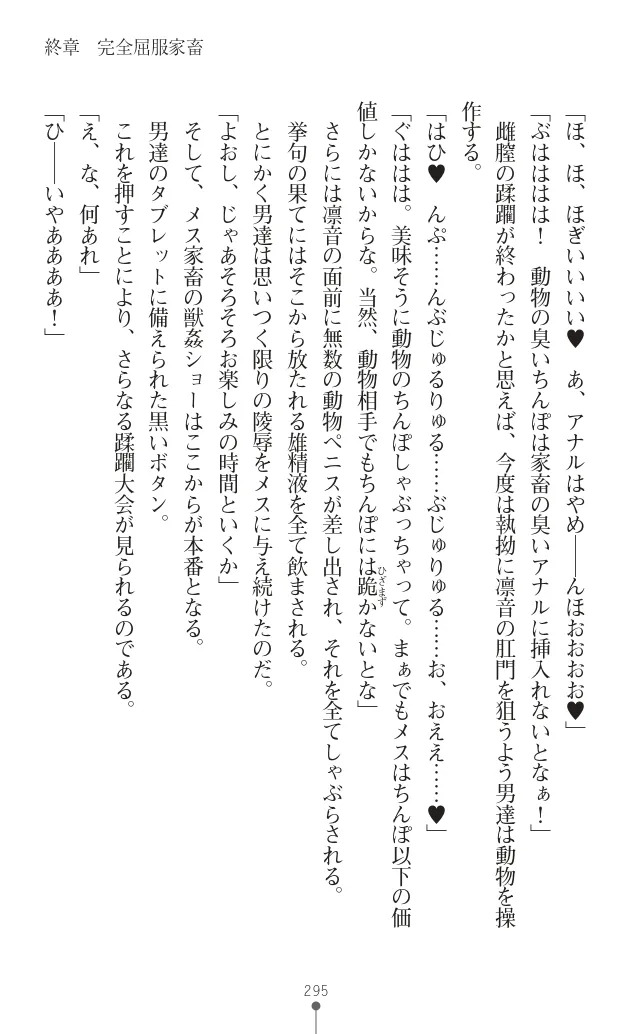 終章　完全屈服家畜
「ほ、ほ、ほぎいいいい♥　あ、アナルはやめ――んほおおおお♥」
「ぶはははは！　動物の臭いちんぽは家畜の臭いアナルに挿入れないとなぁ！」
雌膣の蹂躙が終わったかと思えば、今度は執拗に凛音の肛門を狙うよう男達は動物を操
作する。
「はひ♥　んぷ……んぶじゅるりゅる……ぶじゅりゅる……お、おええ……♥」
「ぐははは。美味そうに動物のちんぽしゃぶっちゃって。まぁでもメスはちんぽ以下の価
値しかないからな。当然、動物相手でもちんぽには跪かないとな」
ひざまず
さらには凛音の面前に無数の動物ペニスが差し出され、それを全てしゃぶらされる。
挙句の果てにはそこから放たれる雄精液を全て飲まされる。
とにかく男達は思いつく限りの陵辱をメスに与え続けたのだ。
「よおし、じゃあそろそろお楽しみの時間といくか」
そして、メス家畜の獣姦ショーはここからが本番となる。
男達のタブレットに備えられた黒いボタン。
これを押すことにより、さらなる蹂躙大会が見られるのである。
「え、な、何あれ」
「ひ――いやああああ！」
295